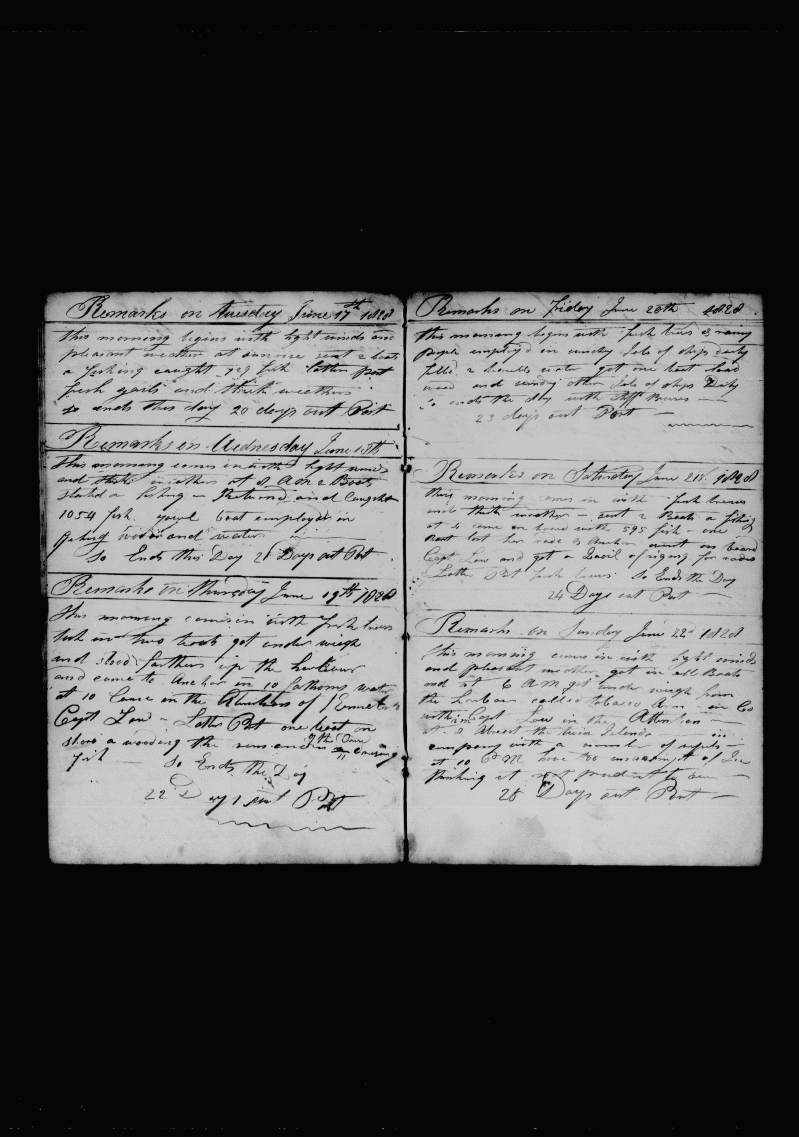 Remarks on Tuesday June 17th 1828
this morning begins with light winds and
pleasant weather at sunrise sent 2 boats
a fishing caught 729 fish latter part
fresh gails and thick weather
so ends this day 20 days out Port
Remarks on Wednesday June 18th
This morning comes in with light winds
and thick weather at 8 AM 2 Boats
started a fishing Returned and Caught
1054 fish yawl boat employed in
wood and water
So Ends this Day 21 Days out Port
Remarks on Thursday June 19th 1828
this morning comes in with fresh breeses
took in two boats got under weigh
and stood farther up the harbour
and came to Anchor in 10 fathoms water
at 10 Came in the of
Capt Law Latter Part one boat on
shore a wooding the remainder of the Crew
fish
So Ends the Day
22 Days out Port
Remarks on Friday June 20th 1828
this morning begins with fresh breses & rainy
people employd in sundry Jobs of ships duty
filld 2 water got one boat load
wood and sundry other Jobs of ships Duty
so ends the day with stiff breses
23 days out Port
Remarks on Saturday June 21st 1828
this morning comes in with fresh breeses
and thick weather sent 2 Boats a fishing
at 4 came on board with 595 fish one
Boat lost her rode & Anchor went on board
Capt Law and got a of riging for rodes
Latter Part fresh breses So Ends the Day
24 Days out Port
Remarks on Sunday June 22d 1828
this morning comes in with light winds
and pleasant weather got in all Boats
and at 6 AM got under weigh from
the harbour called tobacco Arm in Co
with Capt Law in the
at 8 Abrest the Islands
company with a number of
at 10 PM hove too on account of Ice
thinking it not prudent to run
25 Days out Port